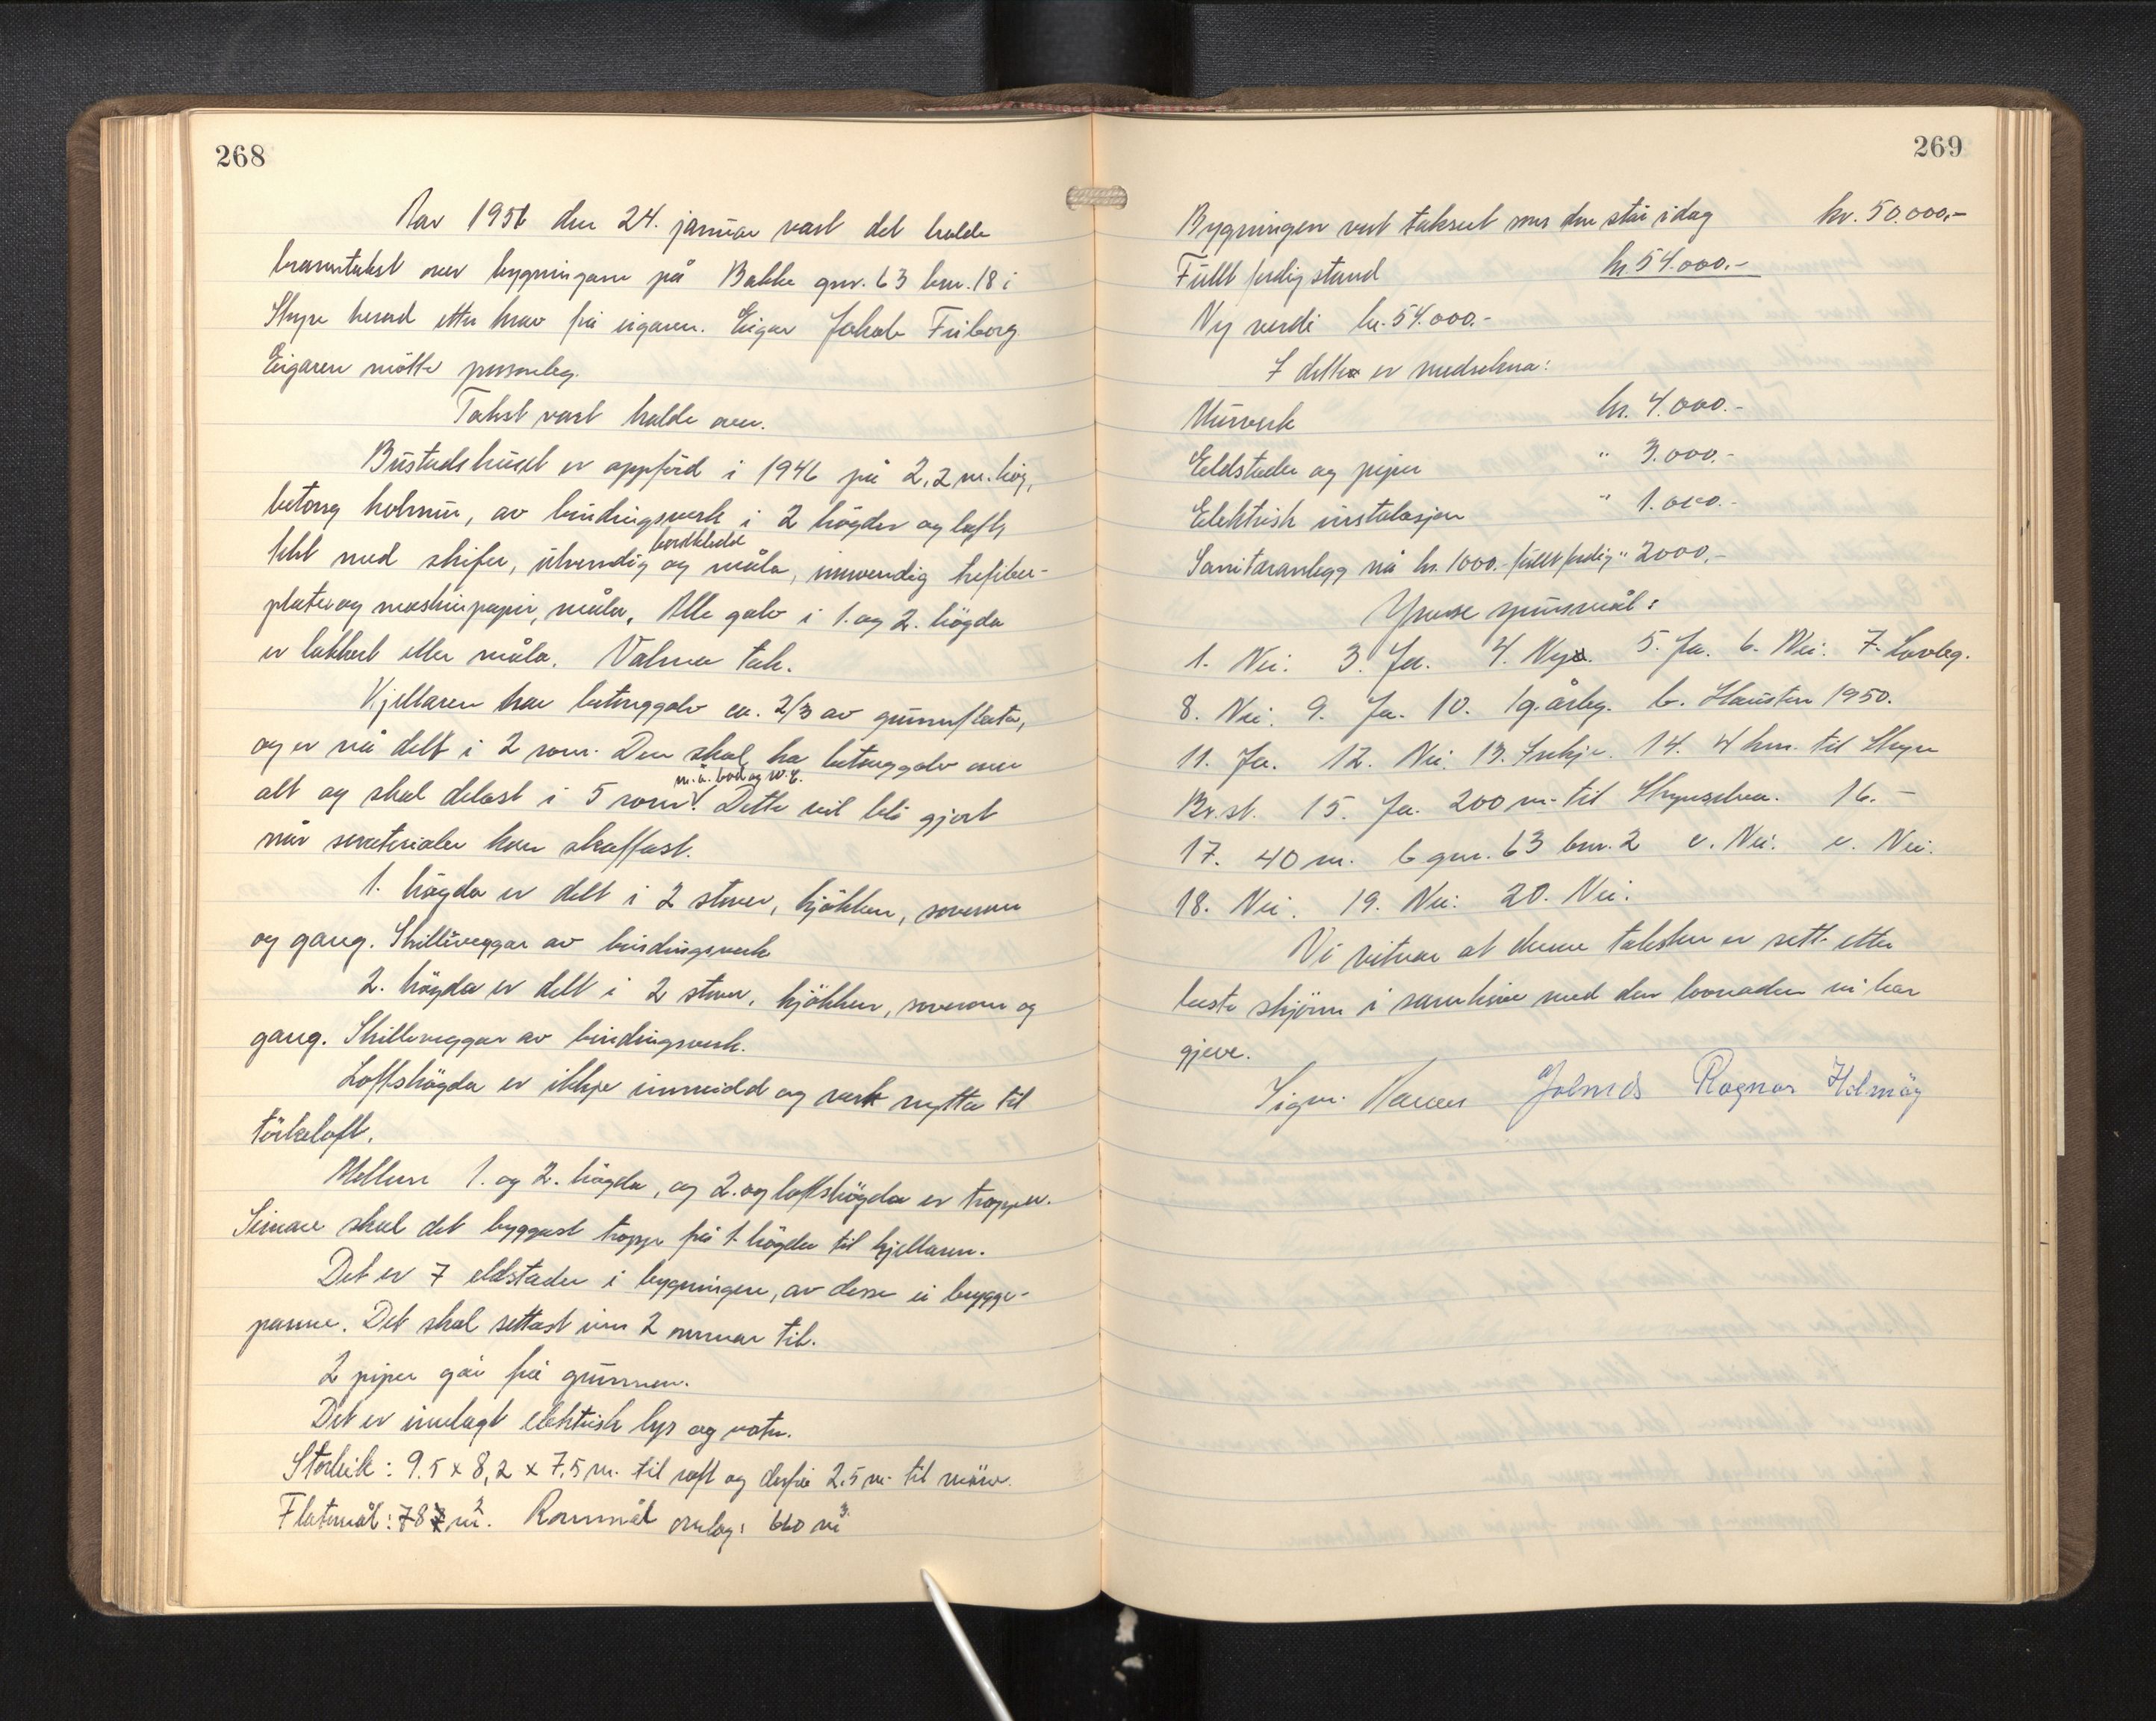 268
Aar 1951 den 24. januar vart det halde
branntakst over bygningane på Bakke gnr. 63 bnr. 18 i
Stryn herad etter krav frå eigaren. Eigar Jakob Friborg
Eigaren møtte personleg.
Takst vart halde over.
Bustadshuset er oppförd i 1946 på 2,2 m. hög,
betong holmur, av bindingsverk i 2 högder og loft,
tekt med skifer, utvendig bordkledd og måla, innvendig trefiber-
plater og maskinpapir, måla. Alle golv i 1. og 2. högda
er lakkert eller måla. Valma tak.
Kjellaren har betonggolv ca. 2/3 av grunnflata,
og er nå delt i 2 rom. Den skal ha betonggolv over
alt og skal delast i 5 rom m. a. bad og w.c. Dette vil bli gjort
når materialer kan skaffast.
1. högda er delt i 2 stover, kjökken, soverom
og gang. Skilleveggar av bindingsverk
2. högda er delt i 2 stover, kjökken, soverom og
gang. Skilleveggar av bindingsverk.
Loftshögda er ikkje innreidd og vert nytta til
törkeloft.
Mellom 1. og 2. högda, og 2. og loftshögda er trapper.
Seinare skal det byggast trapp frå 1. högda til kjellaren.
Det er 7 eldstader i bygningen, av desse ei brygge-
panne. Det skal settast inn 2 omnar til.
2 piper går frå grunnen.
Det er innlagt elektrisk lys og vatn.
Storleik: 9.5 x 8,2 x 7,5 m. til raft og derfrå 2.5 m. til möne.
Flatemål: 78 m². Rommål omlag: 660 m³
269
Bygningen vert taksert som den står i dag kr. 50.000,-
Fullt ferdig stand kr. 54.000.-
Ny verdi kr. 54.000.-
I dette er medrekna:
Murverk kr. 4.000.-
Eldstader og piper " 3.000.-
Elektrisk instalasjon " 1.000.-
Sanitæranlegg nå kr. 1000.- fullt ferdig " 2000.-
Ymse spursmål:
1. Nei. 3. Ja. 4. Nye. 5. Ja. 6. Nei. 7. Lovleg.
8. Nei. 9. Ja. 10. 1g. årleg. b. Hausten 1950.
11. Ja. 12. Nei. 13. Inkje. 14. 4 km. til Stryn
Br.st. 15. Ja. 200 m. til Strynselva. 16. -
17. 40 m. b gnr. 63 bnr. 2 c. Nei. e. Nei.
18. Nei. 19. Nei. 20. Nei.
Vi vitnar at denne taksten er sett etter
beste skjönn i samhöve med den lovnaden vi har
gjeve.
Sigm. Ragnar Holmöy